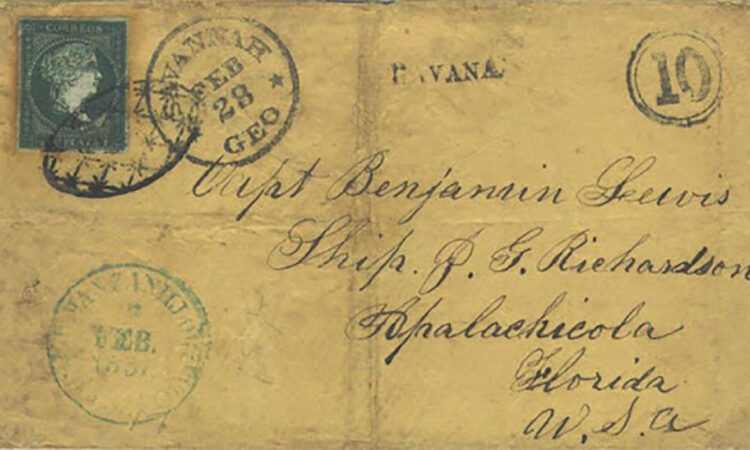 CORREOS
SAVANNAH
FEB
28
GEO
10
Capt Benjamin Lewis
Ship. J. G. Richardson
Apalachicola
Florida
U.S.a
FEB.